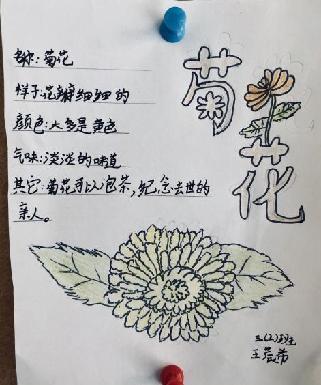 名称:菊花
样子:花瓣细细的
颜色:大多是黄色
气味:淡淡的味道
其它:菊花可以泡茶,纪念去世的
亲人。
菊花
三(2)班